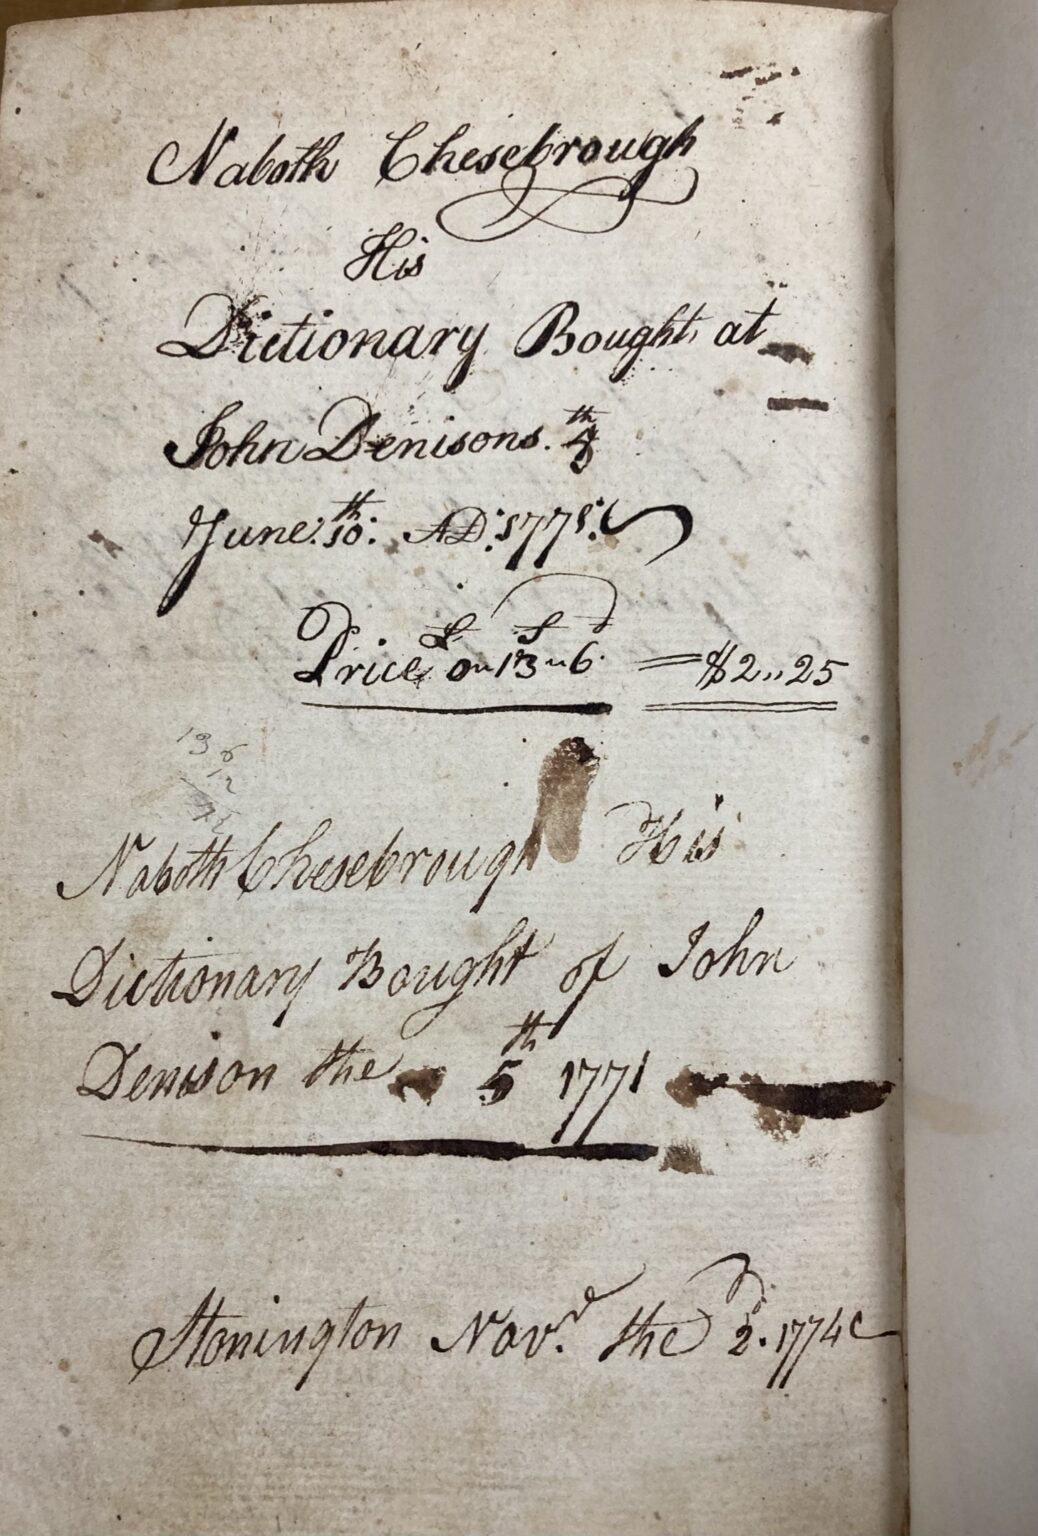 Naboth Chesebrough
His
Dictionary Bought at
John Denisons. th
June: 10th: AD: 1771:
£ S d
Price 0 " 13 " 6 = $2,,25
13 6
12
Naboth Chesebrough His
Dictionary Bought of John
Denison the 5th 1771
Stonington Novr. the 2d. 1774